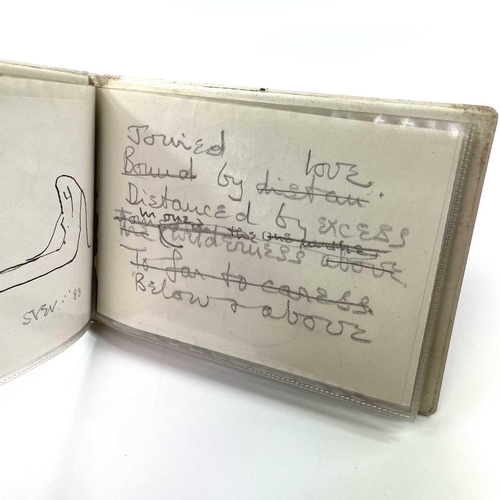 SVEN '88
Joined love.
Bound by distan
Distanced by excess
the wilderness above
To far to caress
Below & above